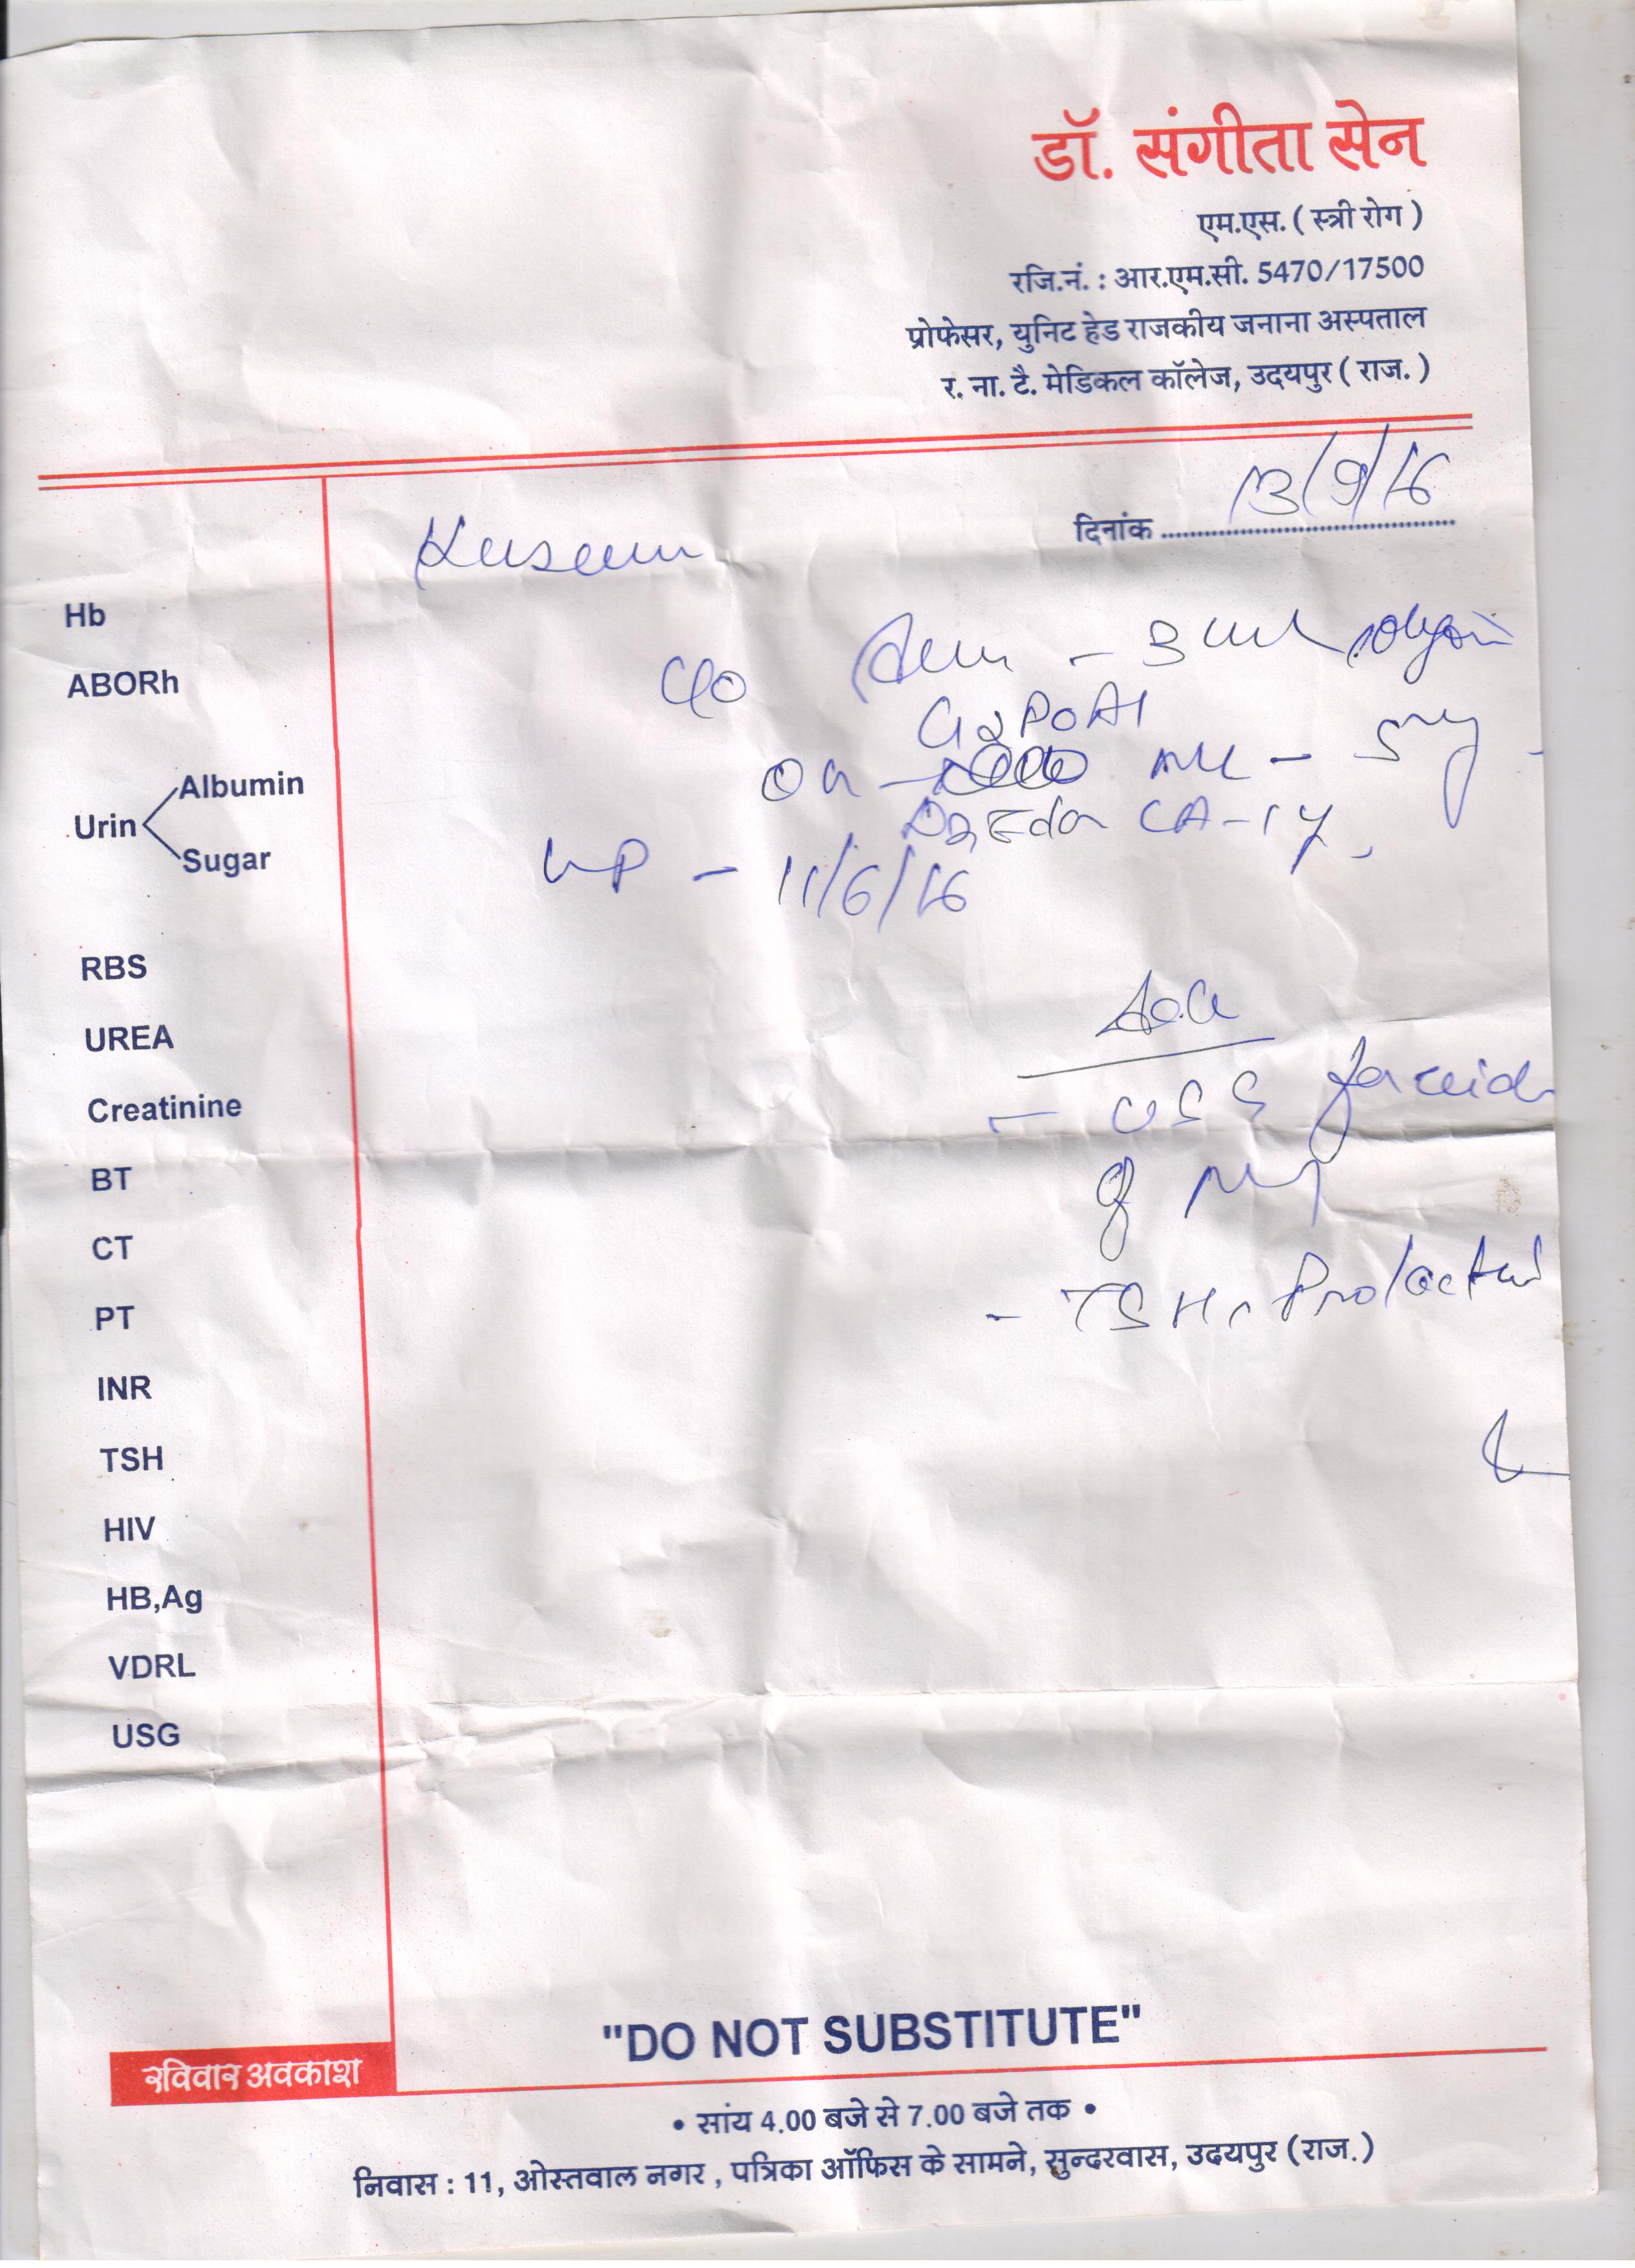 डॉ. संगीता सेन
एम.एस. ( स्त्री रोग )
रजि.नं. : आर.एम.सी. 5470/17500
प्रोफेसर, युनिट हेड राजकीय जनाना अस्पताल
र. ना. टै. मेडिकल कॉलेज, उदयपुर ( राज. )
दिनांक 13/9/16
Kusum
Hb
C/O
ABORh
G2P0A1
Albumin
Urin
Sugar
11/6/16
RBS
Adv
UREA
- USG for
Creatinine
BT
CT
- TSH, Prolactin
PT
INR
TSH
HIV
HB,Ag
VDRL
USG
"DO NOT SUBSTITUTE"
रविवार अवकाश
• सांय 4.00 बजे से 7.00 बजे तक •
निवास : 11, ओस्तवाल नगर , पत्रिका ऑफिस के सामने, सुन्दरवास, उदयपुर (राज.)